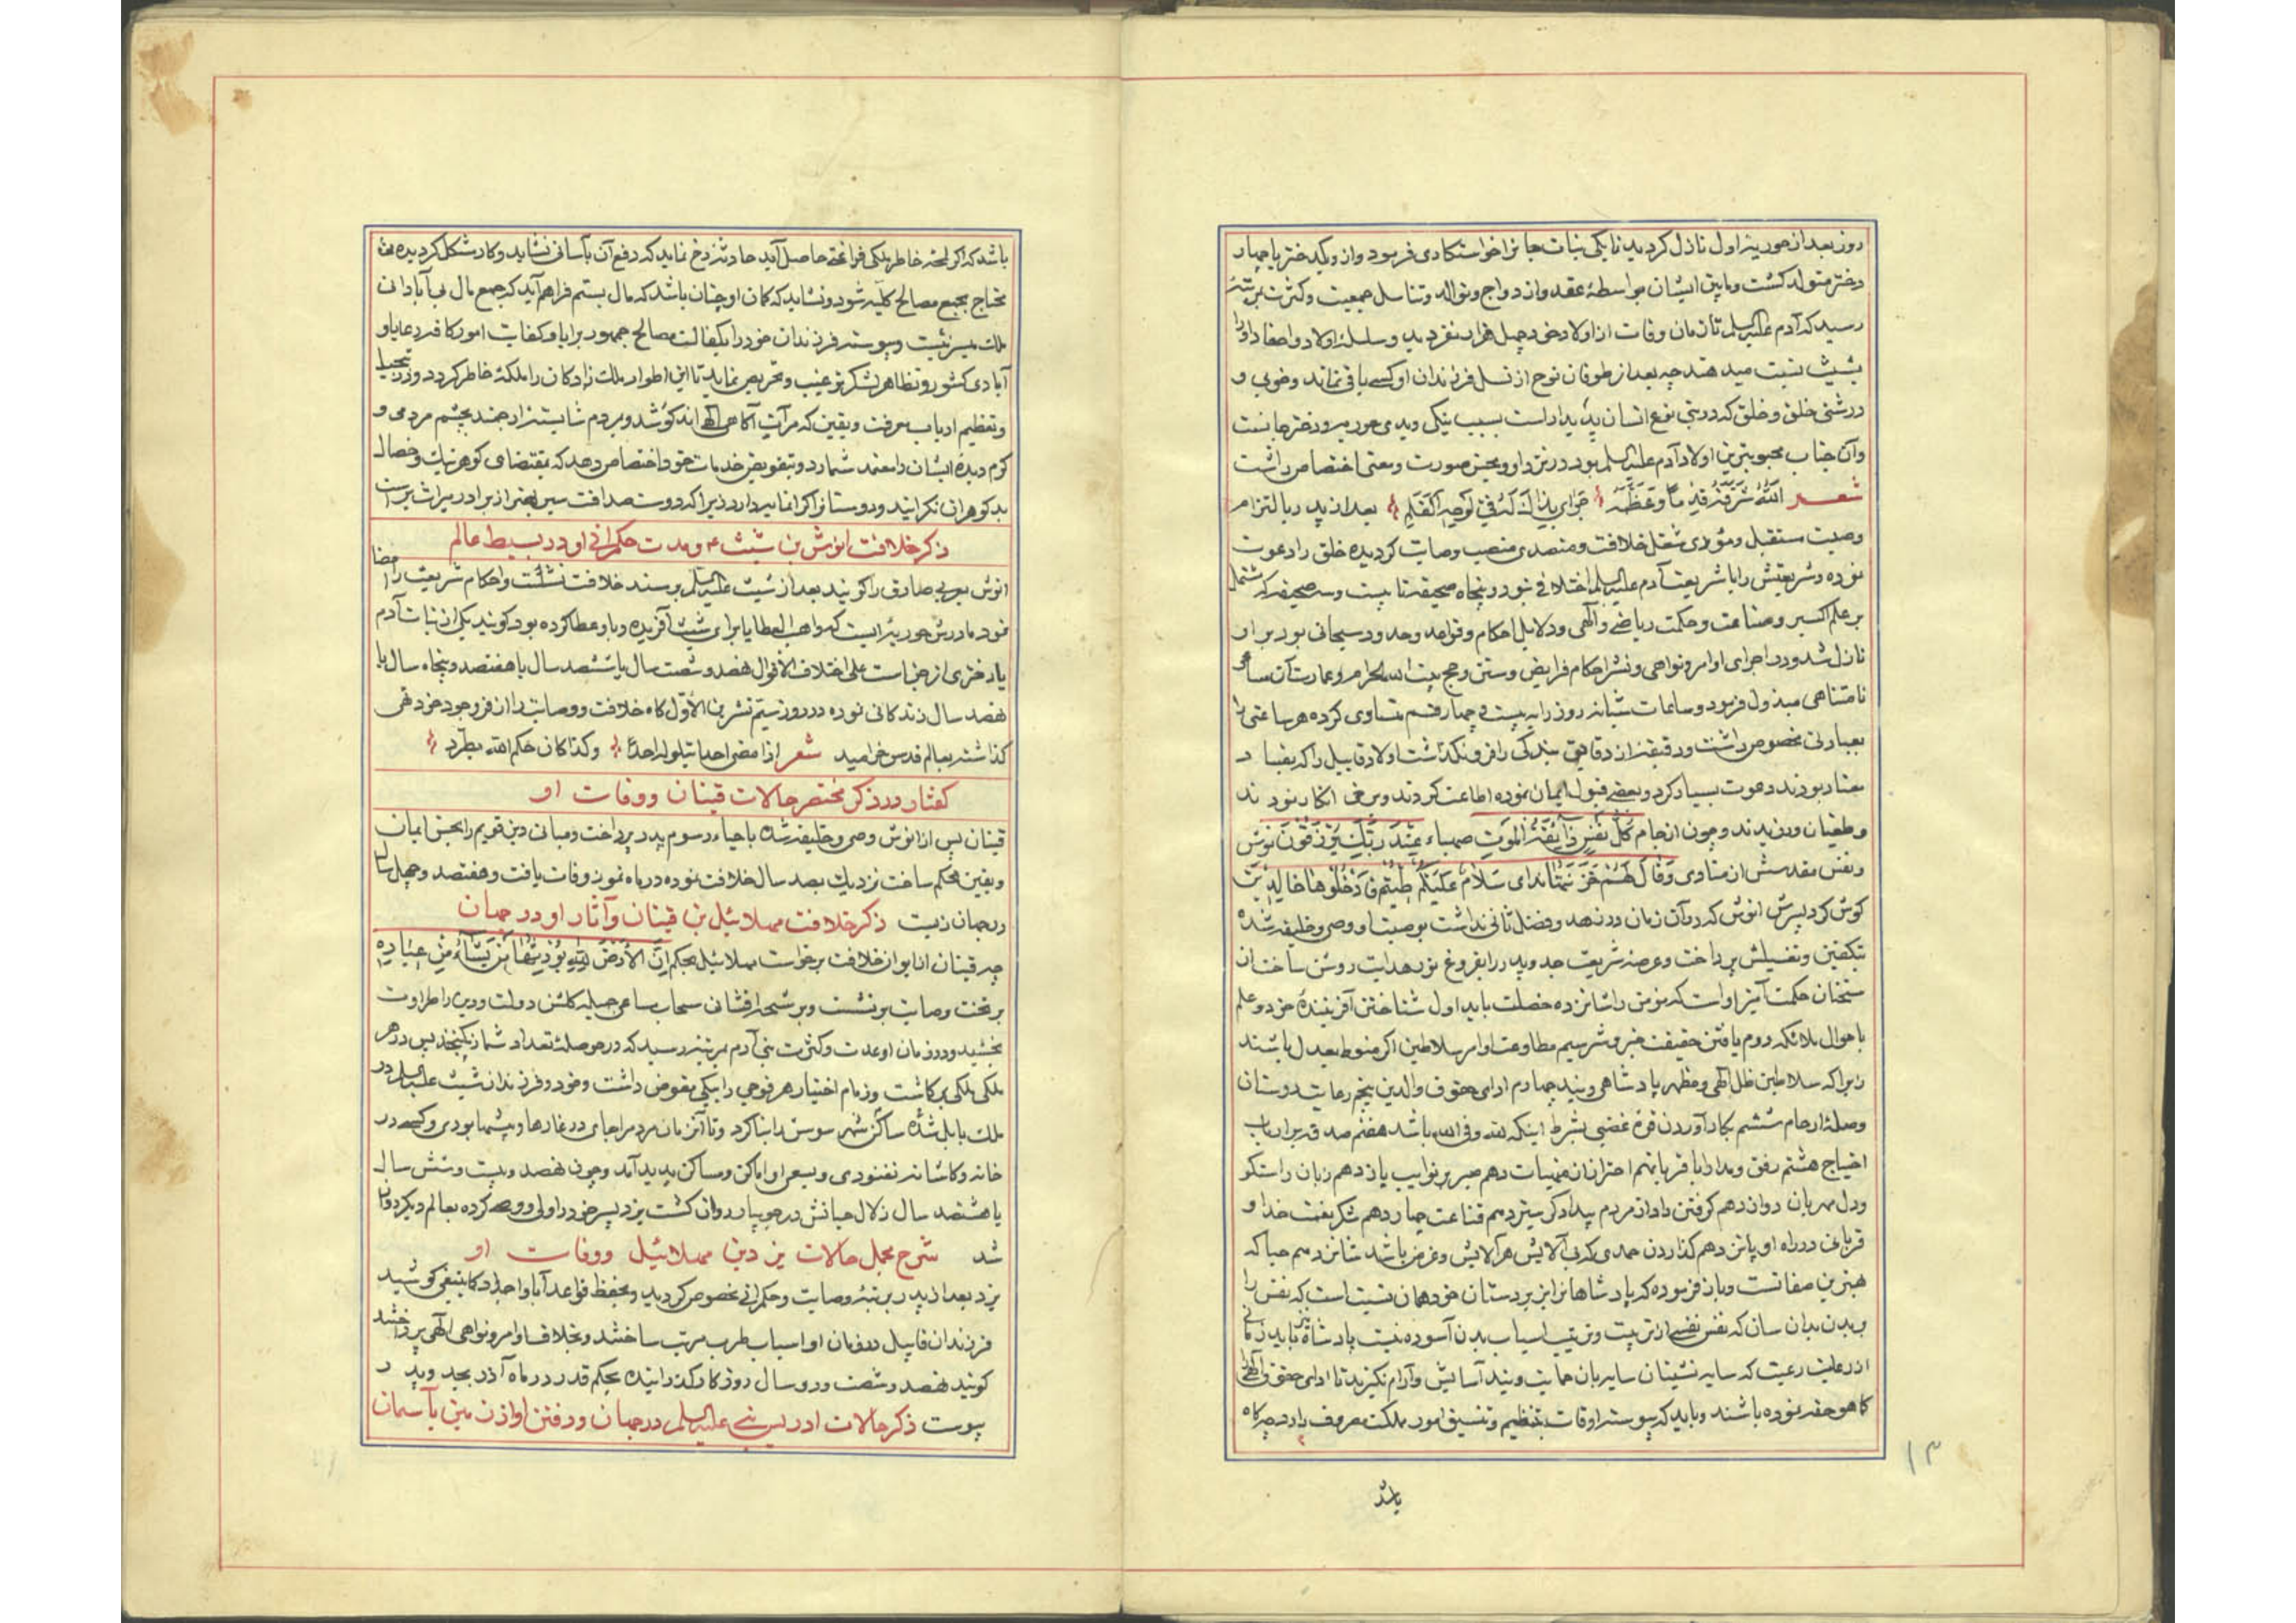 روز بعد از حوریه اول نازل کردید تا یکی بنات جانرا خواستکاری فرمود وازو یکدختر یا چهار
دختر متولد کشت ومابین ایشان بواسطهٔ عقد وازدواج وتوالد وتناسل جمعیت وکثرت بمرتبهٔ
رسید که آدم علیه السلم تا زمان وفات از اولاد خود چهل هزار نفر دید وسلسلهٔ اولاد واحفاد اورا
بشیث نسبت میدهند چه بعد از طوفان نوح از نسل فرزندان او کسی باقی نماند وخوبی و
درشتی خلق وخلق که در بنی نوع انسان پدیدار است بسبب نیکی وبدی حوریه ودختر جانست
وآن جناب محبوبترین اولاد آدم علیه السلم بود در نزد او وبحسن صورت ومعنی اختصاص داشت
شعر الله شرفه قدما وعظمه جری بذالک له فی لوحه القلم بعد از پدر بالتزام
وصیت مستقبل ومؤدی شغل خلافت ومتصدی منصب وصایت کردیده خلق را دعوت
نموده وشریعتش را با شریعت آدم علیه السلم اختلافی نبود و پنجاه صحیفه تا بیست وسه صحیفه که مشتمل
بر علم اکسیر وصناعت وحکمت ریاضی والهی ودلایل احکام وقواعد وحدود سبحانی بود بر او
نازل شد ودر اجرای اوامر ونواهی ونشر احکام فرایض وسنن وحج بیت الله الحرام وعمارت آن ساعی
نامتناهی مبذول فرمود وساعات شبانه روز را به بیست و چهار قسم متساوی کرده هر ساعتی را
بعبادتی مخصوص داشت ودقیقه از دقایق بندکی را فرو نکذاشت اولاد قابیل را که بفساد
معتاد بودند دعوت بسیار کرد وبعضی قبول ایمان نموده اطاعت کردند وبرخی انکار نمودند
وطغیان ورزیدند وچون از جام کل نفس ذایقة الموت صهباء عند ربک یرزقون نوش
ونفس مقدسش از منادی وقال لهم خزنتها ندای سلام علیکم طبتم فادخلوها خالدین
کوش کرد پسرش انوش که در آن زمان در زهد وفضل ثانی نداشت بوصیت او وصی وخلیفه شده
بتکفین وتغسیلش پرداخت وعرصهٔ شریعت جد وپدر را بفروغ نور هدایت روشن ساخت از
سخنان حکمت آمیز اوست که مؤمن را شانزده خصلت باید اول شناختن آفرینندهٔ خود وعلم
باحوال ملائکه دوم یافتن حقیقت خیر وشر سیم مطاوعت اوامر سلاطین اکر منوط بعدل باشند
زیرا که سلاطین ظل الهی ومظهر پادشاهی ویند چهارم ادای حقوق والدین پنجم رعایت دوستان
وصلهٔ ارحام ششم بکار آوردن قوهٔ غضبی بشرط اینکه لله وفی الله باشد هفتم صدقه بر ارباب
احتیاج هشتم رفق ومدارا با قربا نهم احتراز از منهیات دهم صبر بر نوایب یازدهم زبان راستکو
ودل مهربان دوازدهم کرفتن داد از مردم بیدادکر سیزدهم قناعت چهاردهم شکر نعمت خدا و
قربانی در راه او پانزدهم کذاردن حمدی که بی آلایش هر آلایش وغرض باشد شانزدهم حیا که
بهترین صفاتست وباز فرموده که پادشاهانرا بزیردستان خود همان نسبت است که نفس را
ببدن بدان سان که نفس نفسی از تربیت وترتیب اسباب بدن آسوده نیست پادشاه نیز باید زمانی
از رعایت رعیت که سایه نشینان سایه بان حمایت ویند آسایش وآرام نکیرند تا ادای حقوق الهی
کما هو حقه نموده باشند وباید که پیوسته اوقات بتنظیم وتنسیق امور مملکت مصروف دارد چه کاه
باشد
۱۳
باشد که اکر لمحهٔ خاطر ملکی فراغتی حاصل آید حادثهٔ رخ نماید که دفع آن بآسانی نشاید وکار مشکل کردیده
محتاج بجمع مصالح کلیه شود ونشاید که کمان او چنان باشد که مال بستم فراهم آید که جمع مال بی آبادانی
ملک میسر نیست وپیوسته فرزندان خود را بکفالت مصالح جمهور برایا وکفایت امور کافهٔ رعایا و
آبادی کشور وتظاهر لشکر ترغیب وتحریص نماید تا این اطوار ملک زادکان را ملکهٔ خاطر کردد ودر تبجیل
وتعظیم ارباب معرفت ویقین که مرآت آکاهی الهی اند کوشد ومردم شایستهٔ ارجمند بچشم مردمی و
کرم دیده ایشان را معتمد شمارد وبتفویض خدمات خود اختصاص دهد که بمقتضای کوهر نیک وخصال
بد کوهران نکرانید ودوستانرا کرانمایه دارد زیرا که دوست صداقت سیر بهتر از برادر میراث بر است
ذکر خلافت انوش بن شیث ع ومدت حکمرانی او در بسیط عالم
انوش بعربی صادق را کویند بعد از شیث علیه السلم بر مسند خلافت نشست واحکام شریعت را امضا
نمود مادرش حوریه ایست که واهب العطایا برای شیث آفریده وباو عطا کرده بود کویند یکی از بنات آدم
یا دختری از جنیاست علی اختلاف الاقوال نهصد وشصت سال یا ششصد سال یا هفتصد وپنجاه سال یا
نهصد سال زندکانی نموده در روز سیم تشرین الاول کاه خلافت ووصایت را از فر وجود خود تهی
کذاشته بعالم قدس خرامید شعر اذا مضی احد یتلو له احد وکذا کان حکم الله یطرد
کفتار در ذکر مختصر حالات قینان ووفات او
قینان پس از انوش وصی وخلیفه شده باحیاء رسوم پدر پرداخت ومبانی دین قویم را بحسن ایمان
ویقین محکم ساخت نزدیک بصد سال خلافت نموده در ماه تموز وفات یافت وهفتصد وچهل سال
در جهان زیست ذکر خلافت مهلائیل بن قینان وآثار او در جهان
چه قینان از ایوان خلافت برخواست مهلائیل بحکم ان الارض لله یورثها من یشاء من عباده
بر تخت وصایت بر نشست وبرشحه افشانی سحاب مساعی جمیله کلشن دولت ودین را طراوت
بخشید ودر زمان او عدت وکثرت بنی آدم بمرتبهٔ رسید که در حوصلهٔ تعداد شمار نکنجد پس در هر
ملکی ملکی برکماشت وزمام اختیار هر فوجی را بیکی مفوض داشت وخود وفرزندان شیث علیه السلم در
ملک بابل شده ساکن شهر سوس را بنا کرد وتا آن زمان مردم را جای در غارها وبیشها بودی وکسی در
خانه وکاشانه نغنودی وبسعی او اماکن ومساکن پدید آمد وچون نهصد وبیست وشش سال
یا هشتصد سال زلال حیاتش در جویبار روان کشت یزد پسر خود را ولی ووصی کرده بعالم دیکر روان
شد شرح مجمل حالات یزد بن مهلائیل ووفات او
یزد بعد از پدر بر تبهٔ وصایت وحکمرانی مخصوص کردید وبحفظ قواعد آبا واجداد کما ینبغی کوشید
فرزندان قابیل در زمان او اسباب طرب مرتب ساختند وبخلاف اوامر ونواهی الهی پرداختند
کویند نهصد وشصت ودو سال روزکار کذرانیده بحکم قدر در ماه آذر بجد وپدر
پیوست ذکر حالات ادریس نبی علیه السلم در جهان ورفتن او از زمین بآسمان